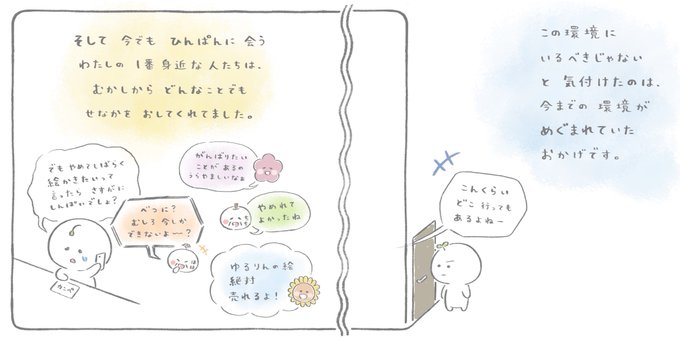 そして 今でも ひんぱんに 会う
わたしの 1番 身近 な 人たちは、
むかしから どんなことでも
せなかを おしてくれてました。
でも やめてしばらく
絵かきたいって
言ったら さすがに
しんぱいでしょ?
かンペ
べつに?
むしろ 今しか
できないよー?
がんばりたい
ことが あるの
うらやましいなぁ
やめれて
よかったね
ゆるりんの 絵
絶対
売れるよ!
この 環境に
いるべきじゃない
と 気付けたのは、
今までの 環境が
めぐまれていた
おかげです。
こんくらい
どこ 行っても
あるよねー